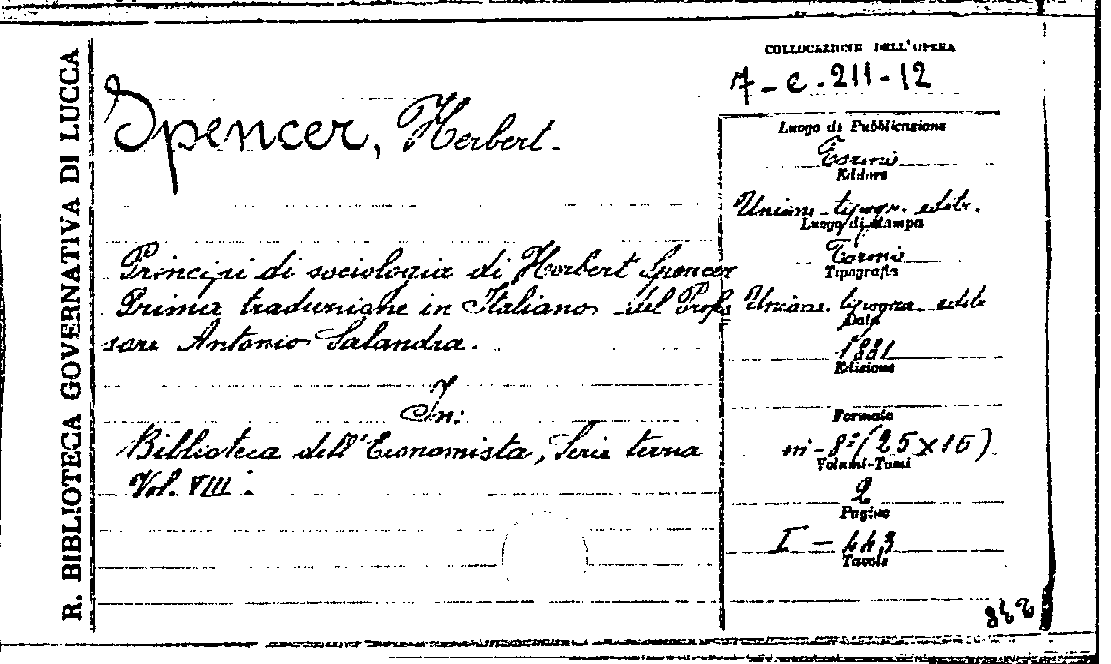 R. BIBLIOTECA GOVERNATIVA DI LUCCA
COLLOCAZIONE DELL'OPERA
7-C.211-12
Spencer, Herbert.
Luogo di Pubblicazione
Torino
Editore
Unione-tipogr. editr.
Luogo di Stampa
Torino
Tipografia
Unione. tipogra. editr
Data
1881
Edizione
Formato
in-8º (25x16)
Volumi-Tomi
2
Pagine
I - 443
Tavole
Principi di sociologia di Herbert Spencer
Prima traduzione in Italiano del Profes
sore Antonio Salandra.
In:
Biblioteca dell'Economista, Serie terza
Vol. VIII.